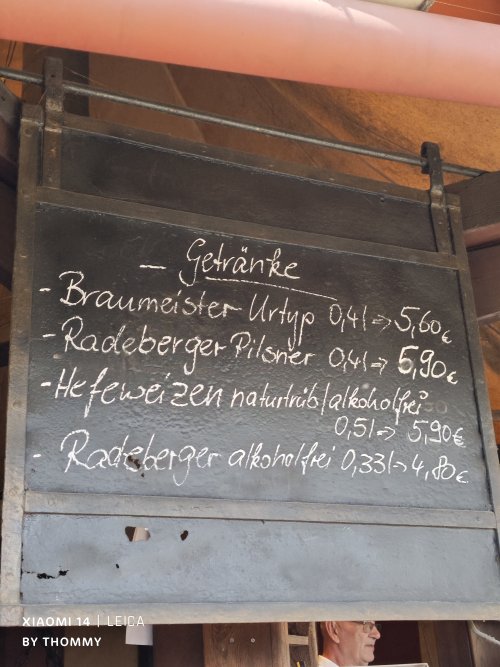 – Getränke
- Braumeister Urtyp 0,4l → 5,60€
- Radeberger Pilsner 0,4l → 5,90€
- Hefeweizen naturtrüb/alkoholfrei
0,5l → 5,90€
- Radeberger alkoholfrei 0,33l → 4,80€
XIAOMI 14 | LEICA
BY THOMMY